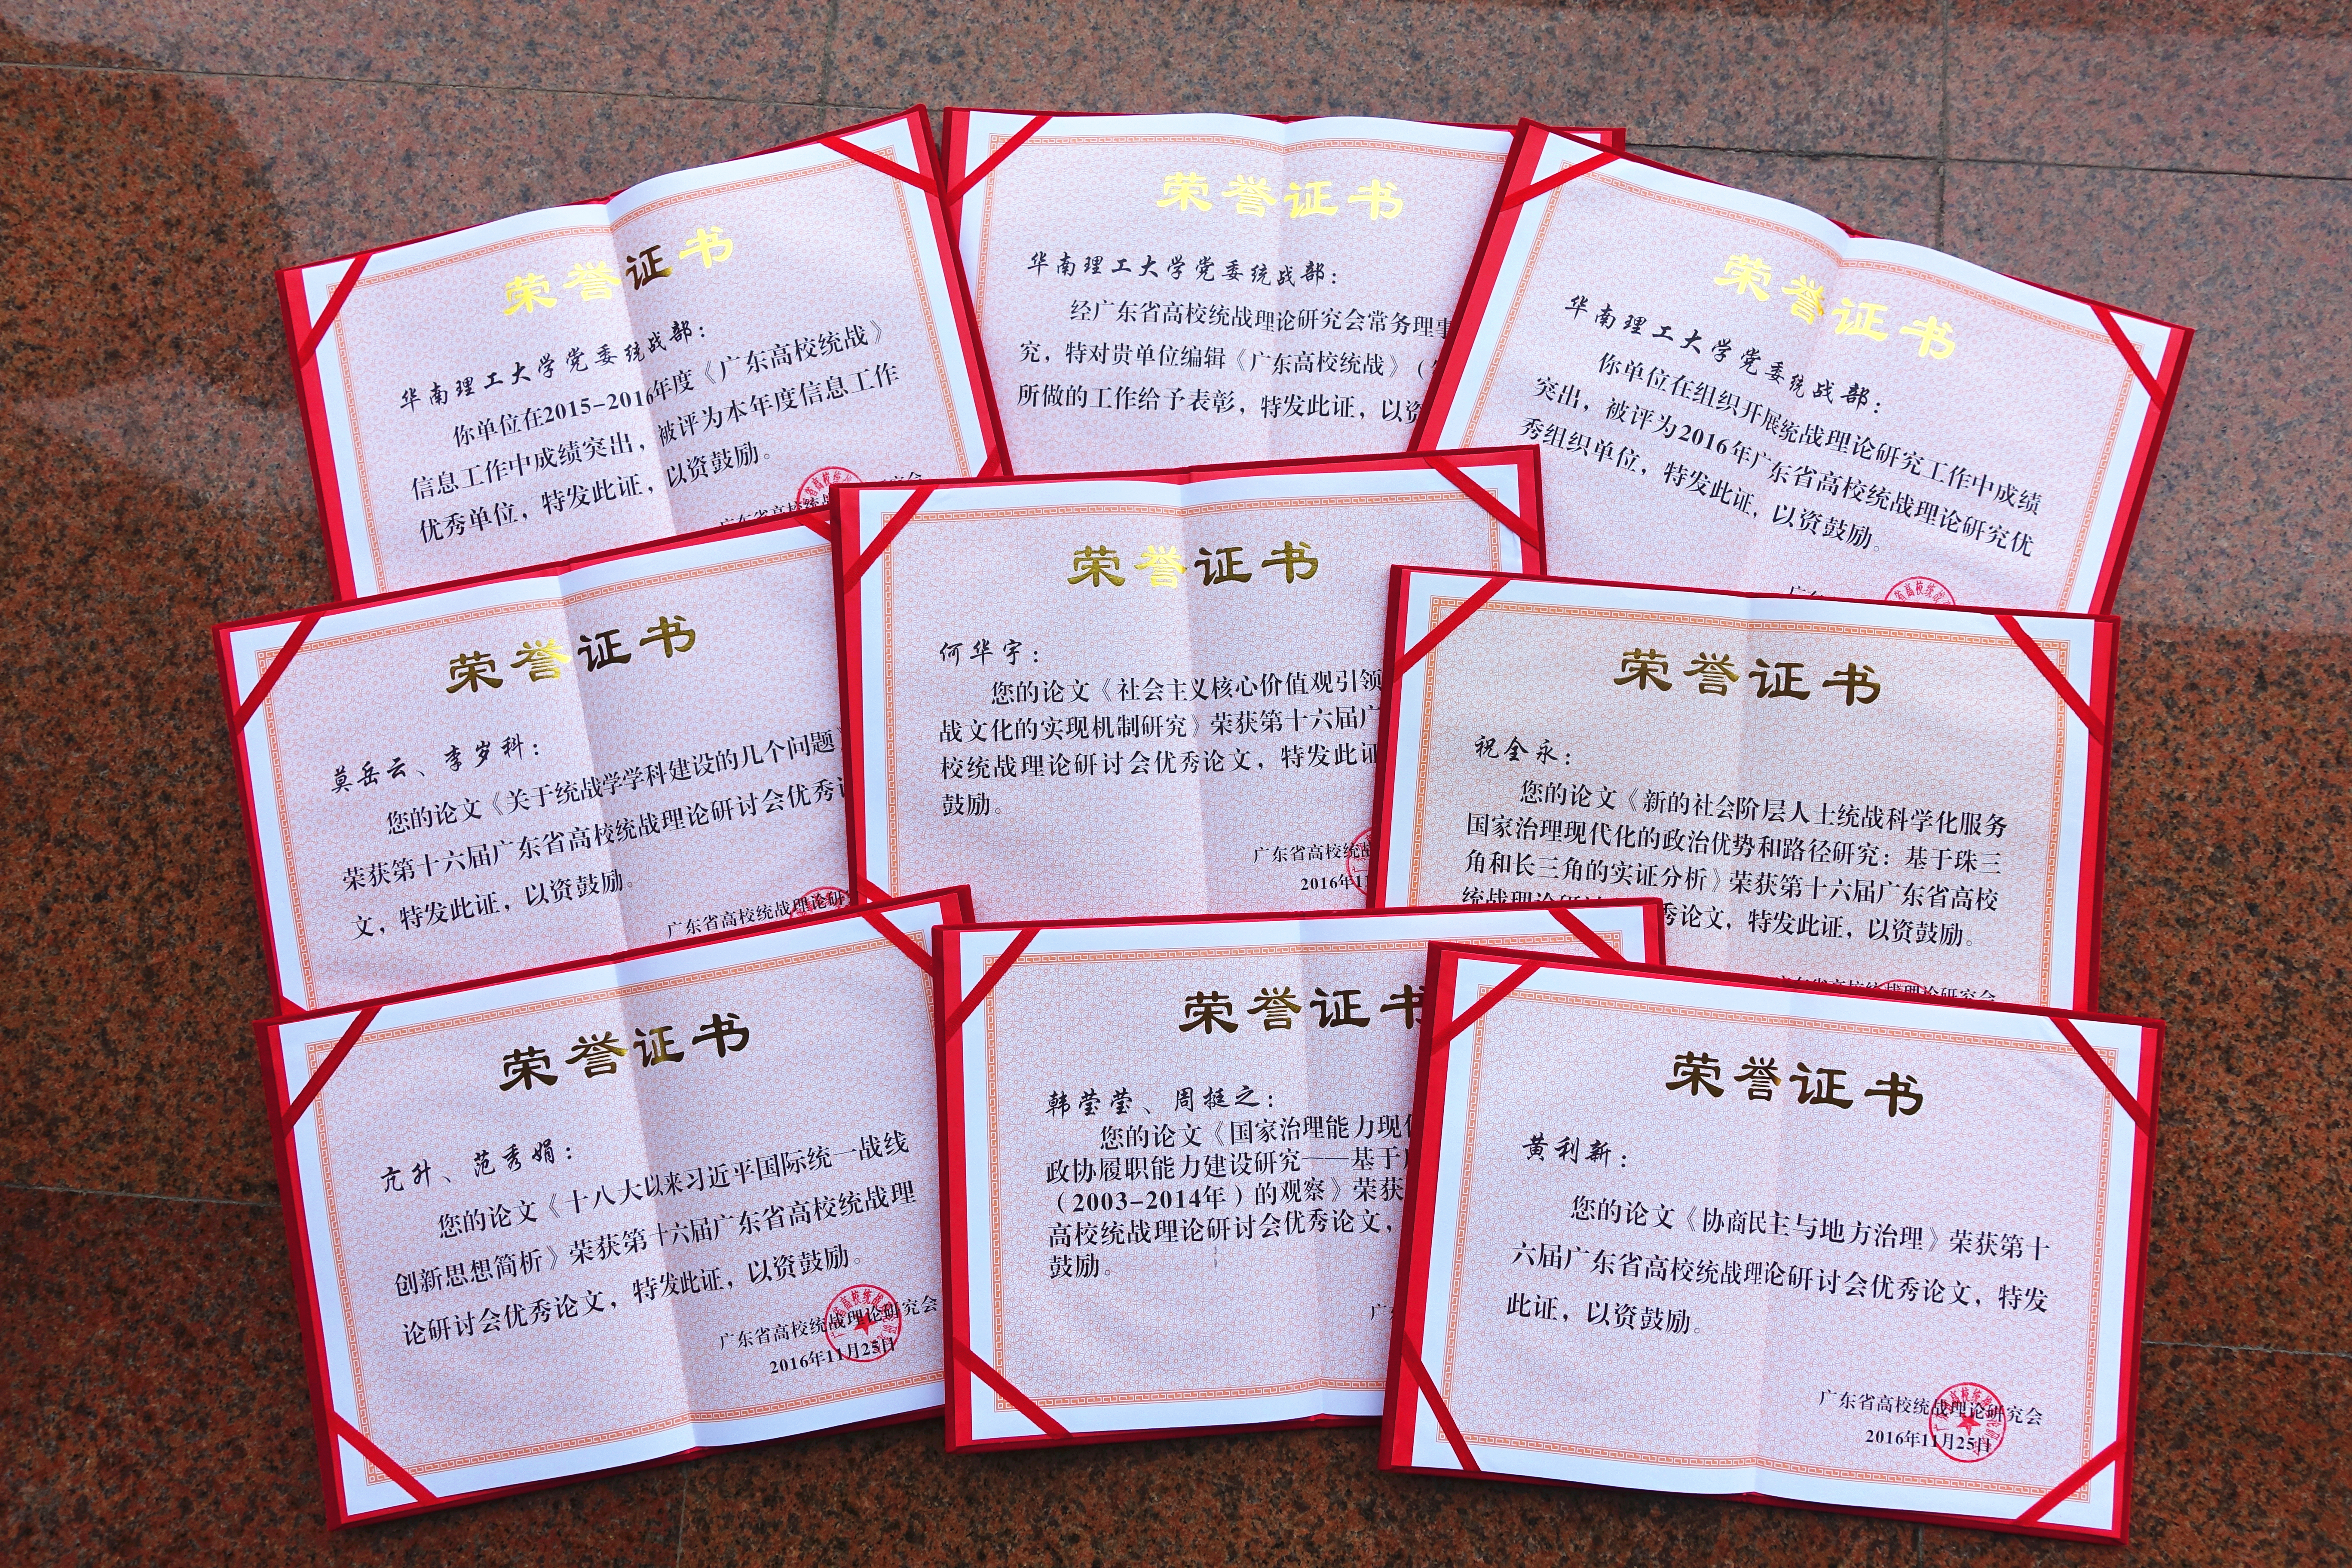 荣誉证书
华南理工大学党委统战部：
你单位在2015-2016年度《广东高校统战》
信息工作中成绩突出，被评为本年度信息工作
优秀单位，特发此证，以资鼓励。
荣誉证书
华南理工大学党委统战部：
经广东省高校统战理论研究会常务理事
究，特对贵单位编辑《广东高校统战》（
所做的工作给予表彰，特发此证，以资
荣誉证书
华南理工大学党委统战部：
你单位在组织开展统战理论研究工作中成绩
突出，被评为2016年广东省高校统战理论研究优
秀组织单位，特发此证，以资鼓励。
荣誉证书
莫岳云、李岁科：
您的论文《关于统战学学科建设的几个问题》
荣获第十六届广东省高校统战理论研讨会优秀论
文，特发此证，以资鼓励。
广东省高校统战理论研
荣誉证书
何华宇：
您的论文《社会主义核心价值观引领
战文化的实现机制研究》荣获第十六届广
校统战理论研讨会优秀论文，特发此证
鼓励。
广东省高校统战
2016年11
荣誉证书
祝全永：
您的论文《新的社会阶层人士统战科学化服务
国家治理现代化的政治优势和路径研究：基于珠三
角和长三角的实证分析》荣获第十六届广东省高校
统战理论研讨秀论文，特发此证，以资鼓励。
广东省高校统战理论研究会
荣誉证书
亢升、范秀娟：
您的论文《十八大以来习近平国际统一战线
创新思想简析》荣获第十六届广东省高校统战理
论研讨会优秀论文，特发此证，以资鼓励。
广东省高校统战理论研究会
2016年11月25日
荣誉证书
韩莹莹、周挺之：
您的论文《国家治理能力现代
政协履职能力建设研究——基于
（2003-2014年）的观察》荣获
高校统战理论研讨会优秀论文，
鼓励。
广
荣誉证书
黄利新：
您的论文《协商民主与地方治理》荣获第十
六届广东省高校统战理论研讨会优秀论文，特发
此证，以资鼓励。
广东省高校统战理论研究会
2016年11月25日